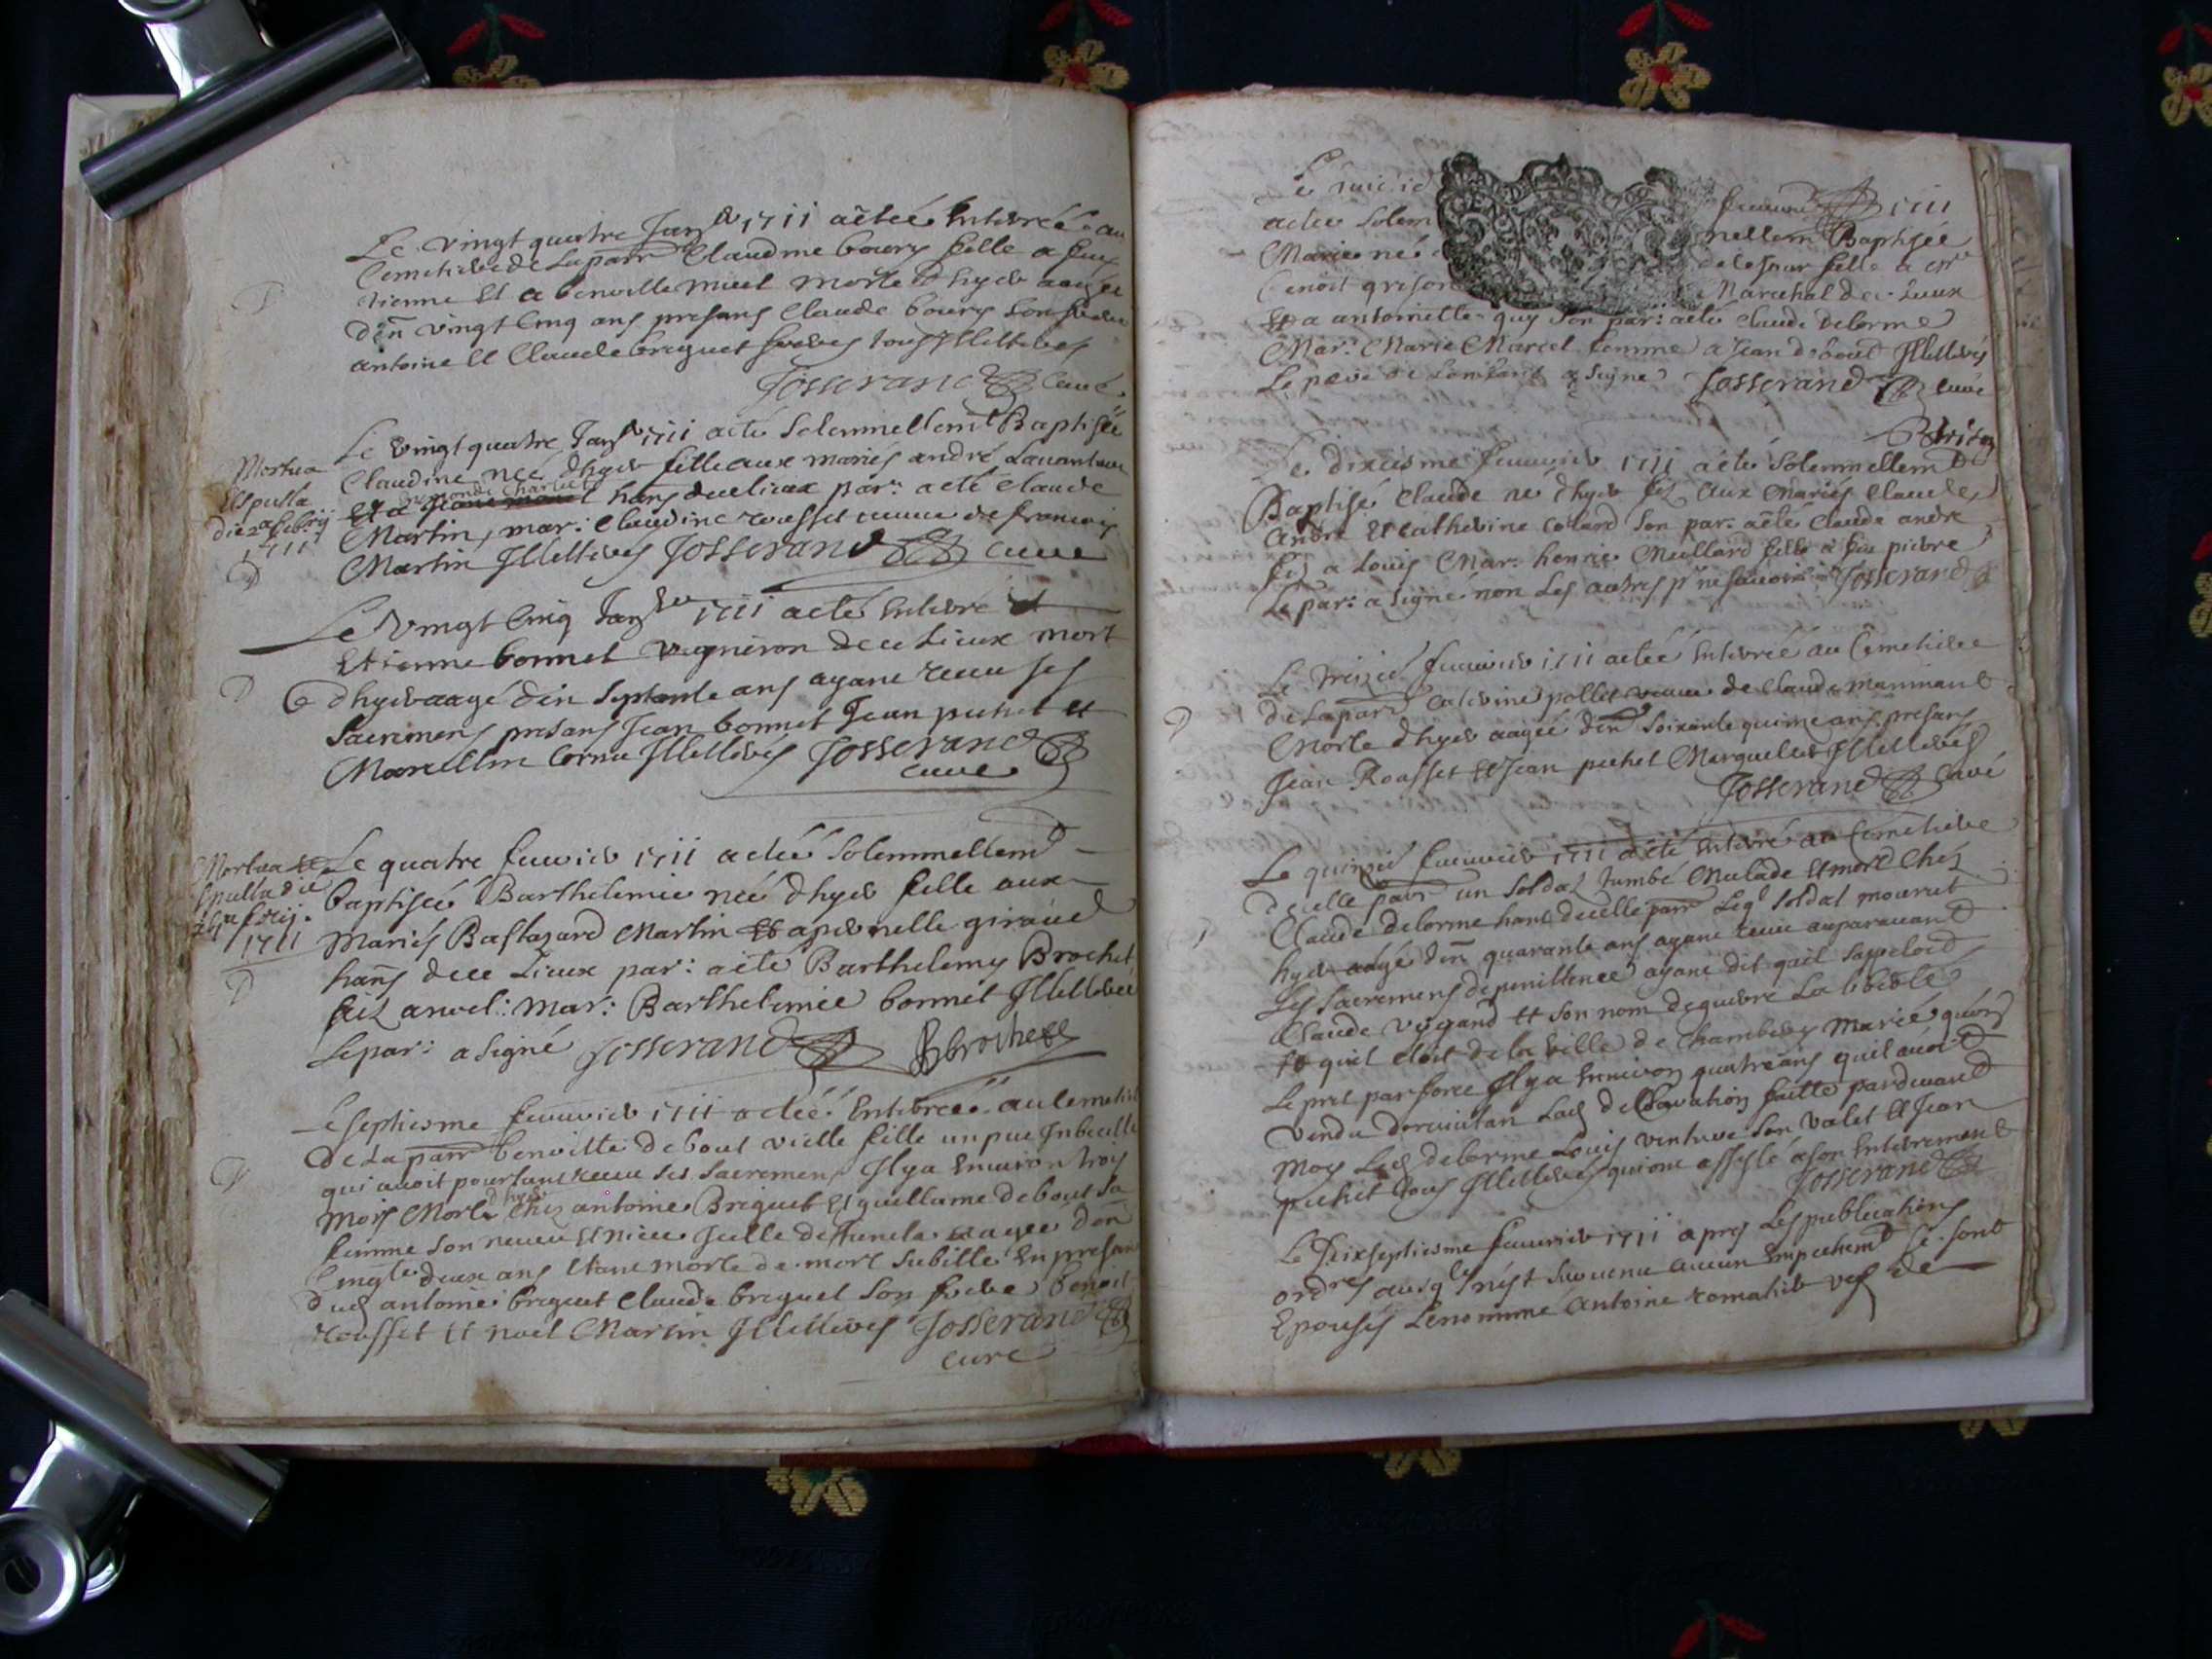 Le vingt quatre Janvr 1711 a êteé Enterreé au
Cemetiere de La parr Claudine boury fille a feu
vienne Et a benoitte miel morte dhyer aagée
d'en vingt Cinq ans presens Claude boury son frere
antoine et Claude briguet freres tous Illetteres
Josserand Curé
Le vingt quatre Janvr 1711 a eté Solemnellemt Baptisée
Claudine neé dhyer fille aux mariés andré Lauanture
Et a rémonde Charlet hans duelieux par: a eté Claude
Martin, mar: Claudine rousset veuue de francois
Martin Illetteres Josserand Cure
Mortua
Et sepulta
die 2a febrij
1711
Le Vingt Cinq Janver 1711 a eté Enterre
Etienne bonnet vigneron de ce Lieux mort
dhyer aagé d'en septante ans ayant receu ses
Sacremens presans Jean bonnet Jean pichet et
Marcellin Cornu Illetteres Josserand
Cure
Mortua et
sepulta die
febrij.
1711
Le quatre feuurier 1711 a eteé Solemnellemt
baptiseé Barthelemie neé dhyer fille aux
mariés Baltazard Martin et a pernelle giraud
hans dece Lieux par: a eté Barthelemy Brochet
filz a noel: mar: Barthelemie bonnet Illetteree
Le par: a signé Josserand Bbrochet
Le septiesme feuurier 1711 a eteé Enterreé au Cemetie
de La parr benoitte debout vielle fille un peu Inbecille
qui auoit pourtant receu ses sacremens Il y a Enuiron trois
mois Morte dhyer chez antoine Briguet Et guillame debout sa
femme son neueu Et niece Icelle deffuncte aagée d'en
Cinqte deux ans Etant morte de mort subitte En presan
dud antoine briguet Claude briguet son frere benoit
rousset et noel Martin Illetteres Josserand
cure
Le huictie feuurier 1711
a eteé Solem nellemt Baptisée
Marie neé de ce Jour fille a mre
Benoit grison Marechal de ce Lieux
Et a antoinette guy Son par: a eté Claude Delorme
Mar: Marie Marcel femme a Jean debout Illetterés
Le pere de Lenfant a signé Josserand Cure
Grison
Le dixiesme feuurier 1711 a eté Solemnellemt
Baptisé Claude né dhyer filz aux Mariés Claude
André Et Catherine Colard Son par: a eté Claude andre
filz a Louis Mar: henrie Mullard fille a feu pierre
Le par: a signé non Les autres pr ne scauoir Josserand
Le treizie feuurier 1711 a eteé Enterreé au Cemetiere
de La parr Caterine pollet veuue de Claude manmant
Morte dhyer aageé d'en Soixante quinze ans presens
Jean Rousset Et Jean pichet Marguellier Illetteres
Josserand Curé
Le quinzie feuurier 1711 a eté Enterré au Cemetiere
de cette parr un soldat tumbé Malade Et mort chez
Claude delorme hant decette parr Leql soldat mourut
hyer aagé d'en quarante ans ayant receu auparauant
Les Sacremens de penittence ayant dit quil sappeloit
Claude vigand Et son nom de guerre La liberte
Et quil etoit de la ville de Chambery Marié quon
Le prit par force Il y a Enuiron quatre ans quil auoit
vendu Lad declaration faitte pardeuant
Moy Led delorme Louis venture son valet Et Jean
pichet tous Illetteres qui ont assisté a son Enterrement
Josserand
Le Dixseptiesme feuurier 1711 apres Les publications
ordres ausqles nest suruenu aucun Empechemt Se sont
Epousés Lenommé Antoine romatier vef de